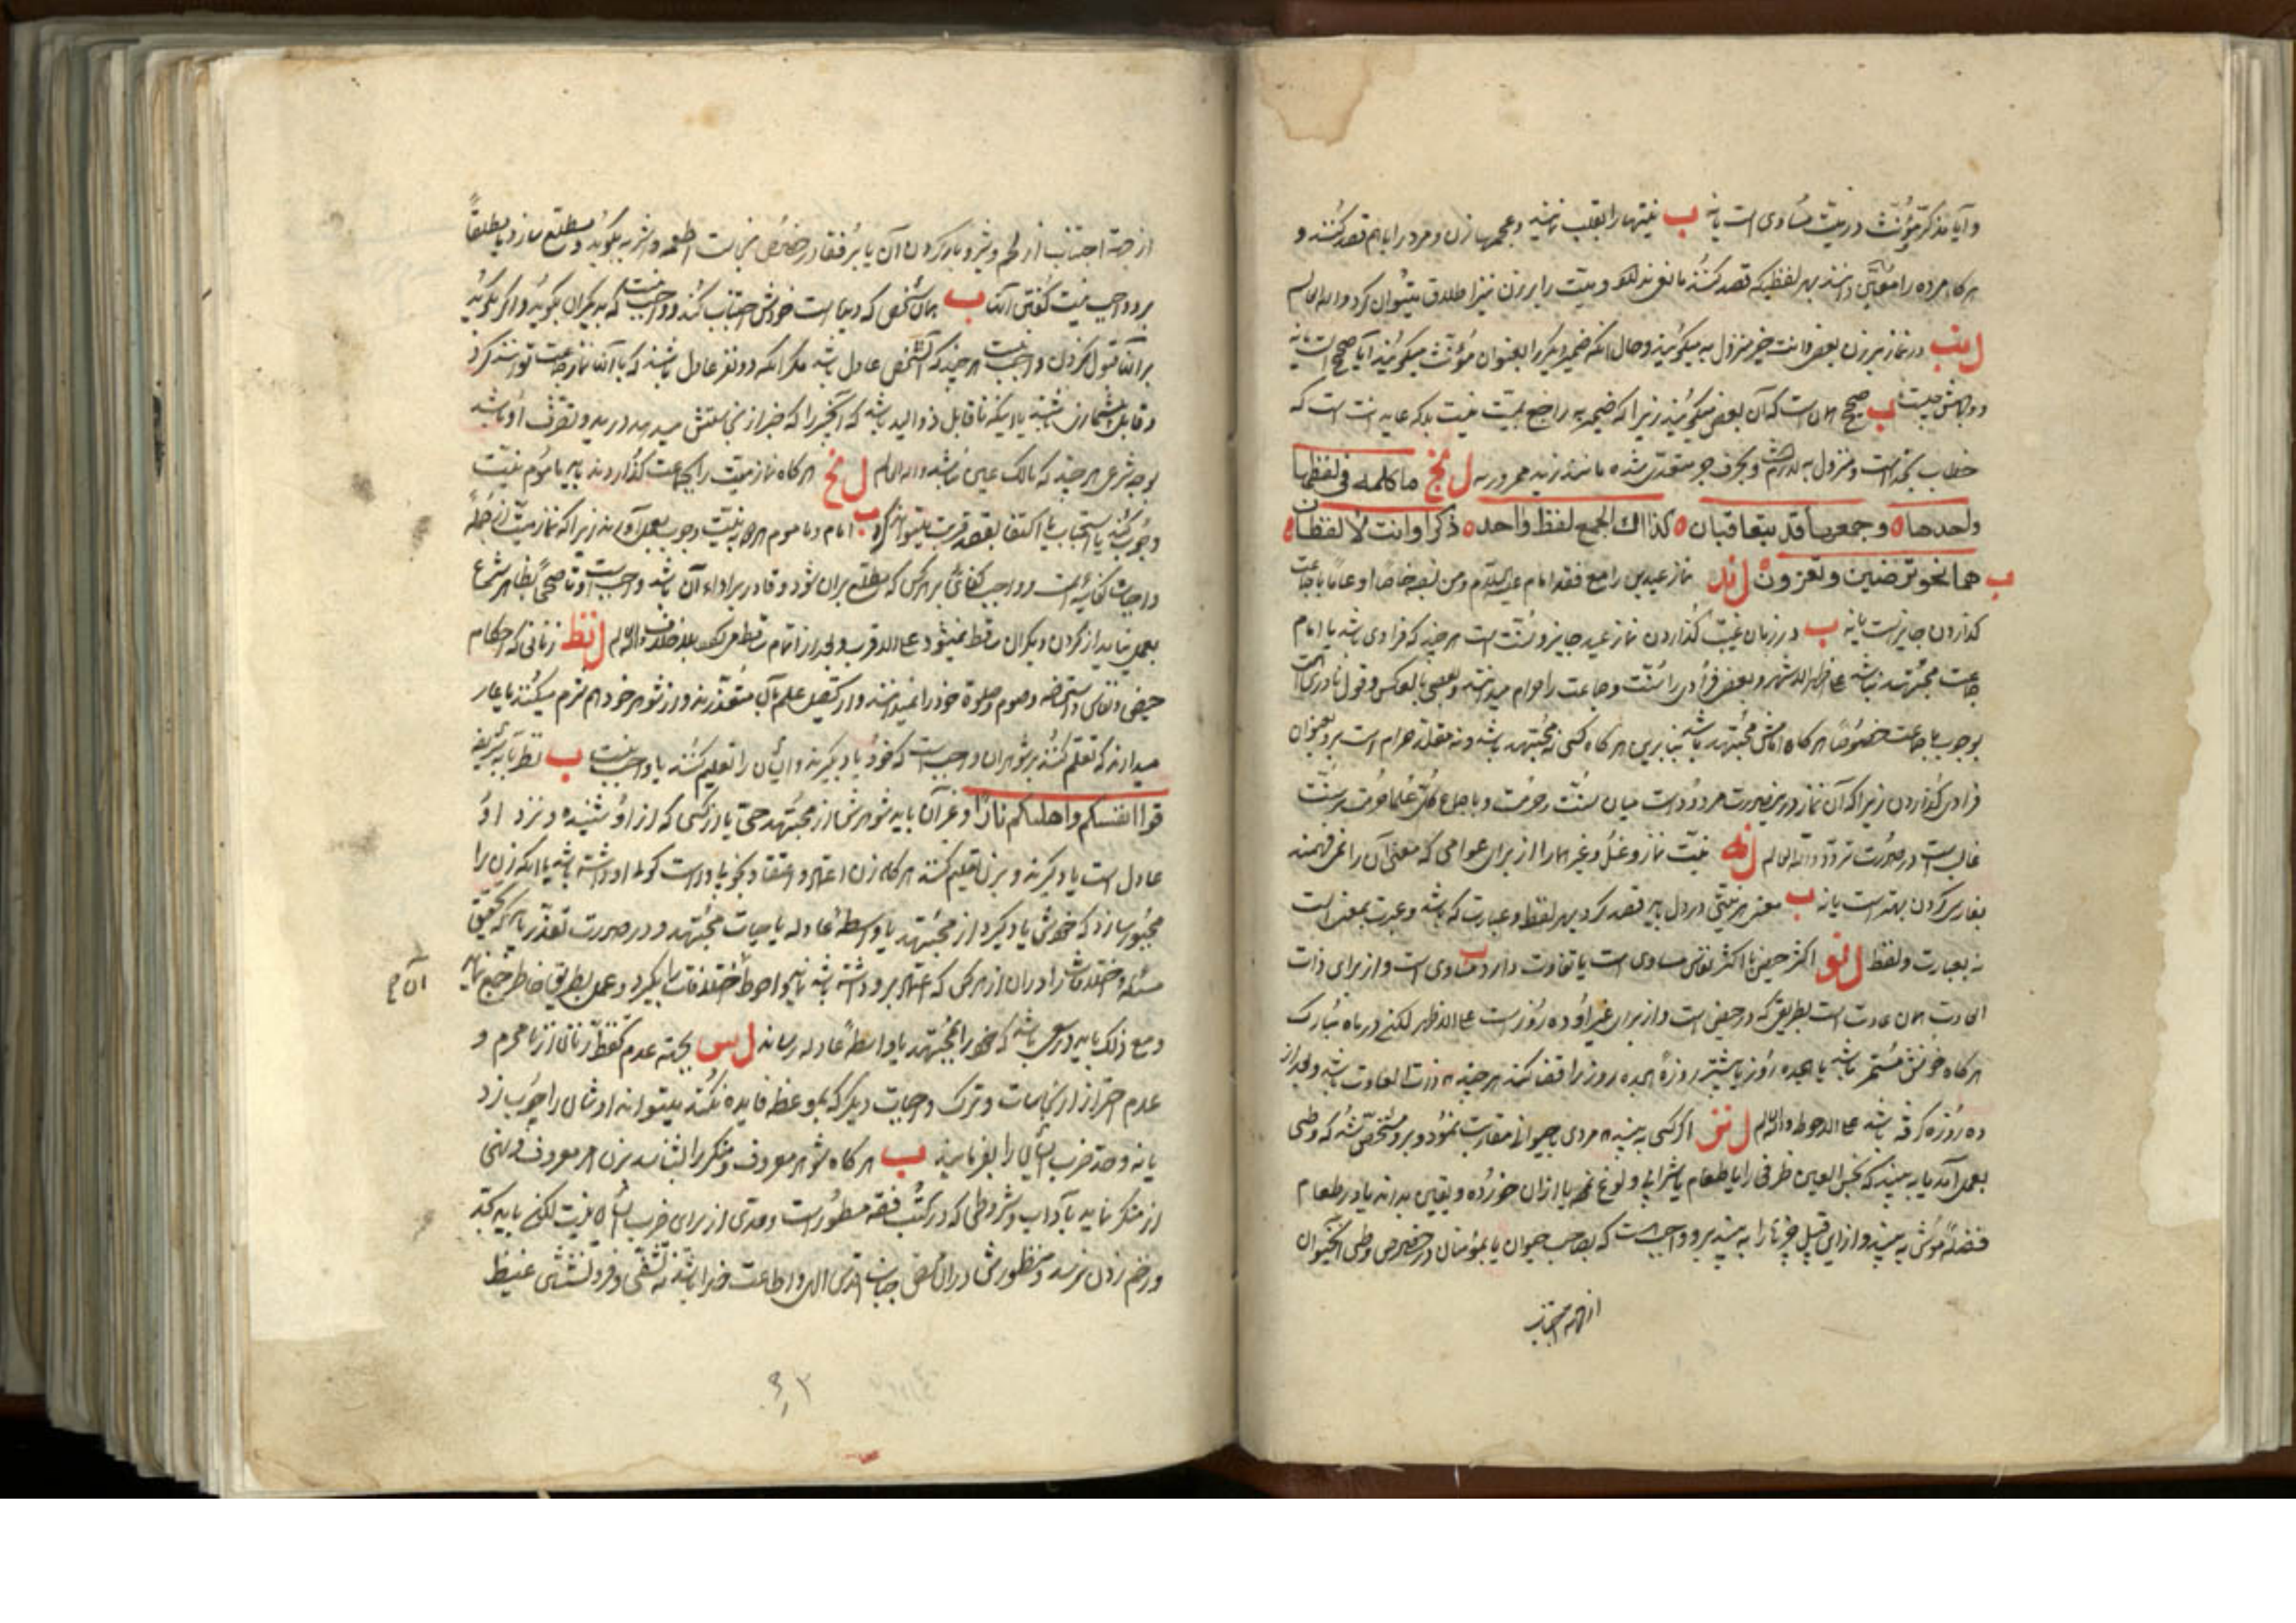 و آیا مذکر و مؤنث در میّت مساوی است یا نه ب نیتها را بقلب نمیند و زن و مرد را با هم قصد کنند و
هرگاه مرده را دانند بهر لفظیکه قصد کنند مانعی ندارد و میت را بر زن نیز اطلاق میتوان کرد والله العالم
لنب در نماز بر زن بعضی وانت خیر منزول به میگویند و حال آنکه ضمیر دیگر را بعنوان مؤنث میگویند آیا صحیح است یا نه
و وجهش چیست ب صحیح همان است که آن بعض میگویند زیرا که ضمیر به راجع بمیّت نیست بلکه
خطاب بخداست و منزول به و بحرف جر متعدی شده مانند زید ممرور به لنج ما کلمه فی لفظها
واحدها ه وجمعها قد یتعاقبان ه کذا اک الجمع لفظ واحد ه ذکرا وانت لا لفظان ه
ب هما نحو ترضین وتغزون لند نماز عیدین را مع فقد امام علیه السلام ومن نصبه خاصا او عاما با جماعت
گذاردن جایز است یا نه ب در زمان غیبت گذاردن نماز عید جایز و سنّت است هر چند که فرادی باشد یا امام
جماعت مجتهد نباشد علی الاظهر الاشهر و بعضی فرادی را سنّت و جماعت را حرام میدانند و بعضی بالعکس و قول نادری است
بوجوب با جماعت خصوصا هرگاه امامش مجتهد باشد بنابرین هرگاه کسی نه مجتهد باشد و نه مقلد حرام است بر او بعنوان
فرادی گذاردن زیرا که آن نماز درین صورت مردود است میان سنّت و حرمت و باجماع کل علما حرمت بر سنّت
غالبست در صورت تردد والله العالم لنه نیّت نماز و غسل و غیر اینها را از برای عوامی که معنی آن را نمی فهمند
بفارسی کردن بهتر است یا نه ب معنی هر نیتی در دل باید قصد کرد بهر لفظ و عبارت که باشد و عبرت بمعنی است
نه بعبارت و لفظ لنو اکثر حیض با اکثر نفاس مساوی است یا تفاوت دارد ب مساوی است و از برای ذات
العادت همان عادت است بطریق که در حیض است و از برای غیر او ده روز است علی الاظهر لکن در ماه مبارک
هرگاه خونش مستمر باشد تا هجده روز یا بیشتر روزهٔ هجده روز را قضا کند هر چند ذات العادت باشد و بعد از
ده روزه گرفته باشد علی الاحوط والله العالم لنز اگر کسی به بیند مردی با حیوانی مقاربت نمود و بر او مشخص شد که وطی
بعمل آمد یا به بیند که نجس العین ظرفی را یا طعام یا شرابی ولوغ نمود یا از آن خورده و یقین بداند یا در طعام
فضلهٔ موش به بیند و از این قبیل چیزها را به بیند بر او واجب است که بصاحب حیوان یا بمؤمنان در خصوص وطی آنحیوان
از جهة اجتناب
از جهة اجتناب از لحم و شیر و بار کردن آن یا برفقا در خصوص نجاست اطعمه و اشربه بگوید و مطلع سازد یا مطلقاً
بر او واجب نیست گفتن آنها ب همان شخص که دیده است خودش اجتناب کند و واجب نیست که بدیگران بگوید و اگر بگوید
بر آنها قبول کردن واجب نیست هر چند که آنشخص عادل باشد مگر آنکه دو نفر عادل باشند که با آنها نماز جماعت توانند کرد
و قابل باشند یا اینکه ناقابل ذو الید باشد که آنچیز را که خبر از نجاستش میدهد در ید و تصرف او باشد
بوجه شرعی هر چند که مالک عین نباشد والله العالم لنح هرگاه نماز میّت را بجماعت گذاردند باید ماموم نیّت
وجوب کند یا استحباب یا اکتفا بقصد قربت میتواند کرد ب امام و ماموم هر دو نیّت وجوب بعمل آورند زیرا که نماز میّت از جمله
واجبات کفائیه است و واجب کفائی بر هر کس که مطلع بران شود و قادر بر اداء آن باشد واجب است و تا صحیحاً بظاهر شرع
بعمل نیاید از گردن دیگران ساقط نمیشود علی الاقرب و بعد از اتمام ساقط میشود بلا خلاف والله العالم لنط زنانی که احکام
حیض و نفاس و استحاضه و صوم و صلوة خود را نمیدانند و از تحصیل علم بآن متعذرند و از شوهر خود هم شرم میکنند یا عار
میدارند که تعلم کنند بر شوهران واجب است که خود یاد بگیرند و ایشان را تعلیم کنند یا واجب نیست ب نظر بآیه شریفه
قوا انفسکم واهلیکم نارًا و غیر آن باید شوهرش از مجتهد حی یا از کسی که از او شنیده و نزد او
عادل است یاد بگیرند و بزن تعلیم کنند هرگاه زن اعتماد و اعتقاد بخوبی و راست گوئی او داشته باشد یا اینکه زن را
مجبور سازد که خودش یاد بگیرد از مجتهد یا واسطهٔ عادله یا حیات مجتهد و در صورت تعذر باید که تحقیق
مسئله و اختلافات را در آن از هر کس که اعتماد بر او داشته باشد نماید و احوط اختلافات را بگیرد و عمل بطریق خاطر جمع نماید
آن م
و مع ذلک باید در سعی باشد که خود را بمجتهد یا واسطهٔ عادله رساند لس بجهة عدم تحفظ زنان از نامحرم و
عدم احتراز از نجاسات و ترک واجبات دیگر که بموعظه فایده نکند میتواند او شان را چوب زد
یا نه و حد ضرب ایشان را بفرمایید ب هرگاه شوهر معروف و منکر را شناسد بزن امر معروف و نهی
از منکر نماید بآداب و شروطی که در کتب فقه مسطور است و حدی از برای ضرب ایشان نیست لکن باید بحد
و زخم زدن نرسد و منظورش در آن محض جناب اقدس الهی و اطاعت خدا باشد نه تشفی و فرو نشستن غیظ